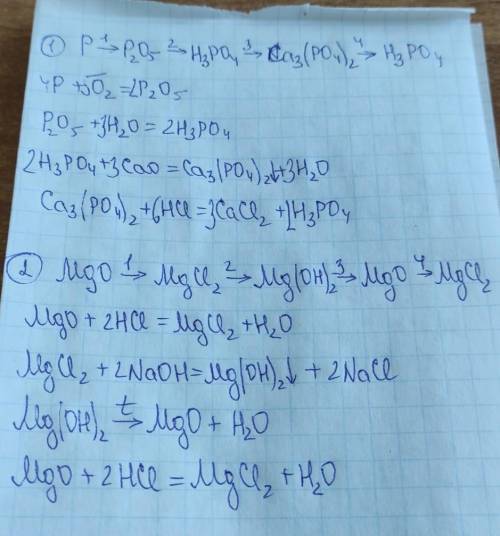 ① P →¹ P₂O₅ →² H₃PO₄ →³ Ca₃(PO₄)₂ →⁴ H₃PO₄
4P + 5O₂ = 2P₂O₅
P₂O₅ + 3H₂O = 2H₃PO₄
2H₃PO₄ + 3CaO = Ca₃(PO₄)₂↓ + 3H₂O
Ca₃(PO₄)₂ + 6HCl = 3CaCl₂ + 2H₃PO₄
② MgO →¹ MgCl₂ →² Mg(OH)₂ →³ MgO →⁴ MgCl₂
MgO + 2HCl = MgCl₂ + H₂O
MgCl₂ + 2NaOH = Mg(OH)₂↓ + 2NaCl
Mg(OH)₂ →ᵗ MgO + H₂O
MgO + 2HCl = MgCl₂ + H₂O